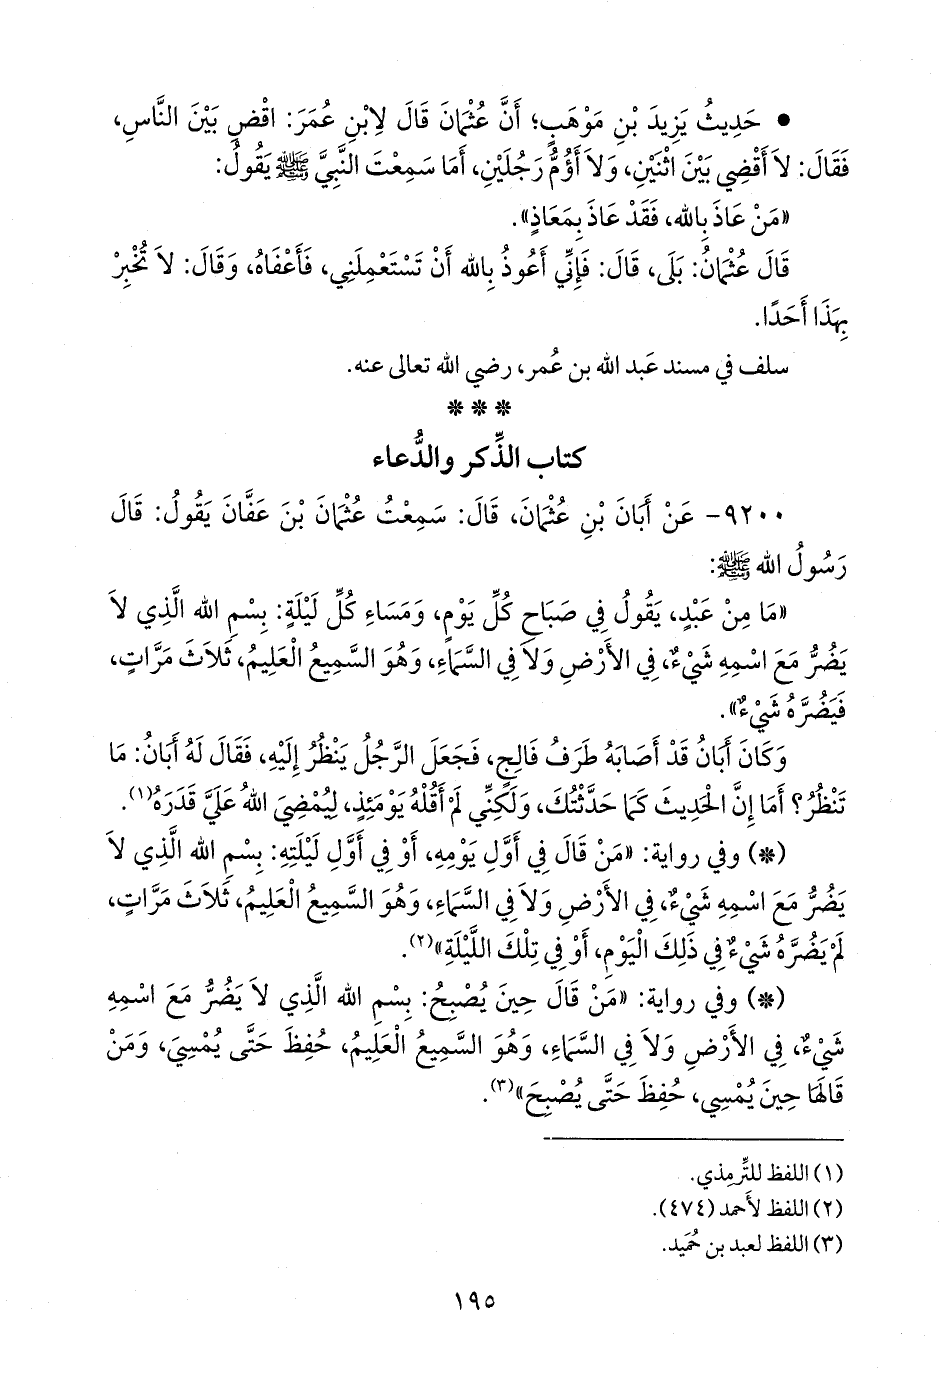 • حَدِيثُ يَزِيدَ بْنِ مَوْهَبٍ؛ أَنَّ عُثْمَانَ قَالَ لِابْنِ عُمَرَ: اقْضِ بَيْنَ النَّاسِ،
فَقَالَ: لاَ أَقْضِي بَيْنَ اثْنَيْنِ، وَلاَ أَؤُمُّ رَجُلَيْنِ، أَمَا سَمِعْتَ النَّبِيَّ ﷺ يَقُولُ:
«مَنْ عَاذَ بِالله، فَقَدْ عَاذَ بِمَعَاذٍ».
قَالَ عُثْمَانُ: بَلَى، قَالَ: فَإِنِّي أَعُوذُ بِالله أَنْ تَسْتَعْمِلَنِي، فَأَعْفَاهُ، وَقَالَ: لاَ تُخْبِرْ
بِهَذَا أَحَدًا.
سلف في مسند عَبد الله بن عُمر، رضي الله تعالى عنه.
***
كتاب الذِّكر والدُّعاء
٩٢٠٠- عَنْ أَبَانَ بْنِ عُثْمَانَ، قَالَ: سَمِعْتُ عُثْمَانَ بْنَ عَفَّانَ يَقُولُ: قَالَ
رَسُولُ الله ﷺ:
«مَا مِنْ عَبْدٍ، يَقُولُ فِي صَبَاحِ كُلِّ يَوْمٍ، وَمَسَاءِ كُلِّ لَيْلَةٍ: بِسْمِ الله الَّذِي لاَ
يَضُرُّ مَعَ اسْمِهِ شَيْءٌ، فِي الأَرْضِ وَلاَ فِي السَّمَاءِ، وَهُوَ السَّمِيعُ الْعَلِيمُ، ثَلاَثَ مَرَّاتٍ،
فَيَضُرَّهُ شَيْءٌ».
وَكَانَ أَبَانُ قَدْ أَصَابَهُ طَرَفُ فَالِجٍ، فَجَعَلَ الرَّجُلُ يَنْظُرُ إِلَيْهِ، فَقَالَ لَهُ أَبَانُ: مَا
تَنْظُرُ؟ أَمَا إِنَّ الْحَدِيثَ كَمَا حَدَّثْتُكَ، وَلَكِنِّي لَمْ أَقُلْهُ يَوْمَئِذٍ، لِيُمْضِيَ اللهُ عَلَيَّ قَدَرَهُ(١).
(*) وفي رواية: «مَنْ قَالَ فِي أَوَّلِ يَوْمِهِ، أَوْ فِي أَوَّلِ لَيْلَتِهِ: بِسْمِ الله الَّذِي لاَ
يَضُرُّ مَعَ اسْمِهِ شَيْءٌ، فِي الأَرْضِ وَلاَ فِي السَّمَاءِ، وَهُوَ السَّمِيعُ الْعَلِيمُ، ثَلاَثَ مَرَّاتٍ،
لَمْ يَضُرَّهُ شَيْءٌ فِي ذَلِكَ الْيَوْمِ، أَوْ فِي تِلْكَ اللَّيْلَةِ»(٢).
(*) وفي رواية: «مَنْ قَالَ حِينَ يُصْبِحُ: بِسْمِ الله الَّذِي لاَ يَضُرُّ مَعَ اسْمِهِ
شَيْءٌ، فِي الأَرْضِ وَلاَ فِي السَّمَاءِ، وَهُوَ السَّمِيعُ الْعَلِيمُ، حُفِظَ حَتَّى يُمْسِيَ، وَمَنْ
قَالَهَا حِينَ يُمْسِي، حُفِظَ حَتَّى يُصْبِحَ»(٣).
(١) اللفظ للتِّرمِذي.
(٢) اللفظ لأَحمد (٤٧٤).
(٣) اللفظ لعبد بن حُميد.
١٩٥